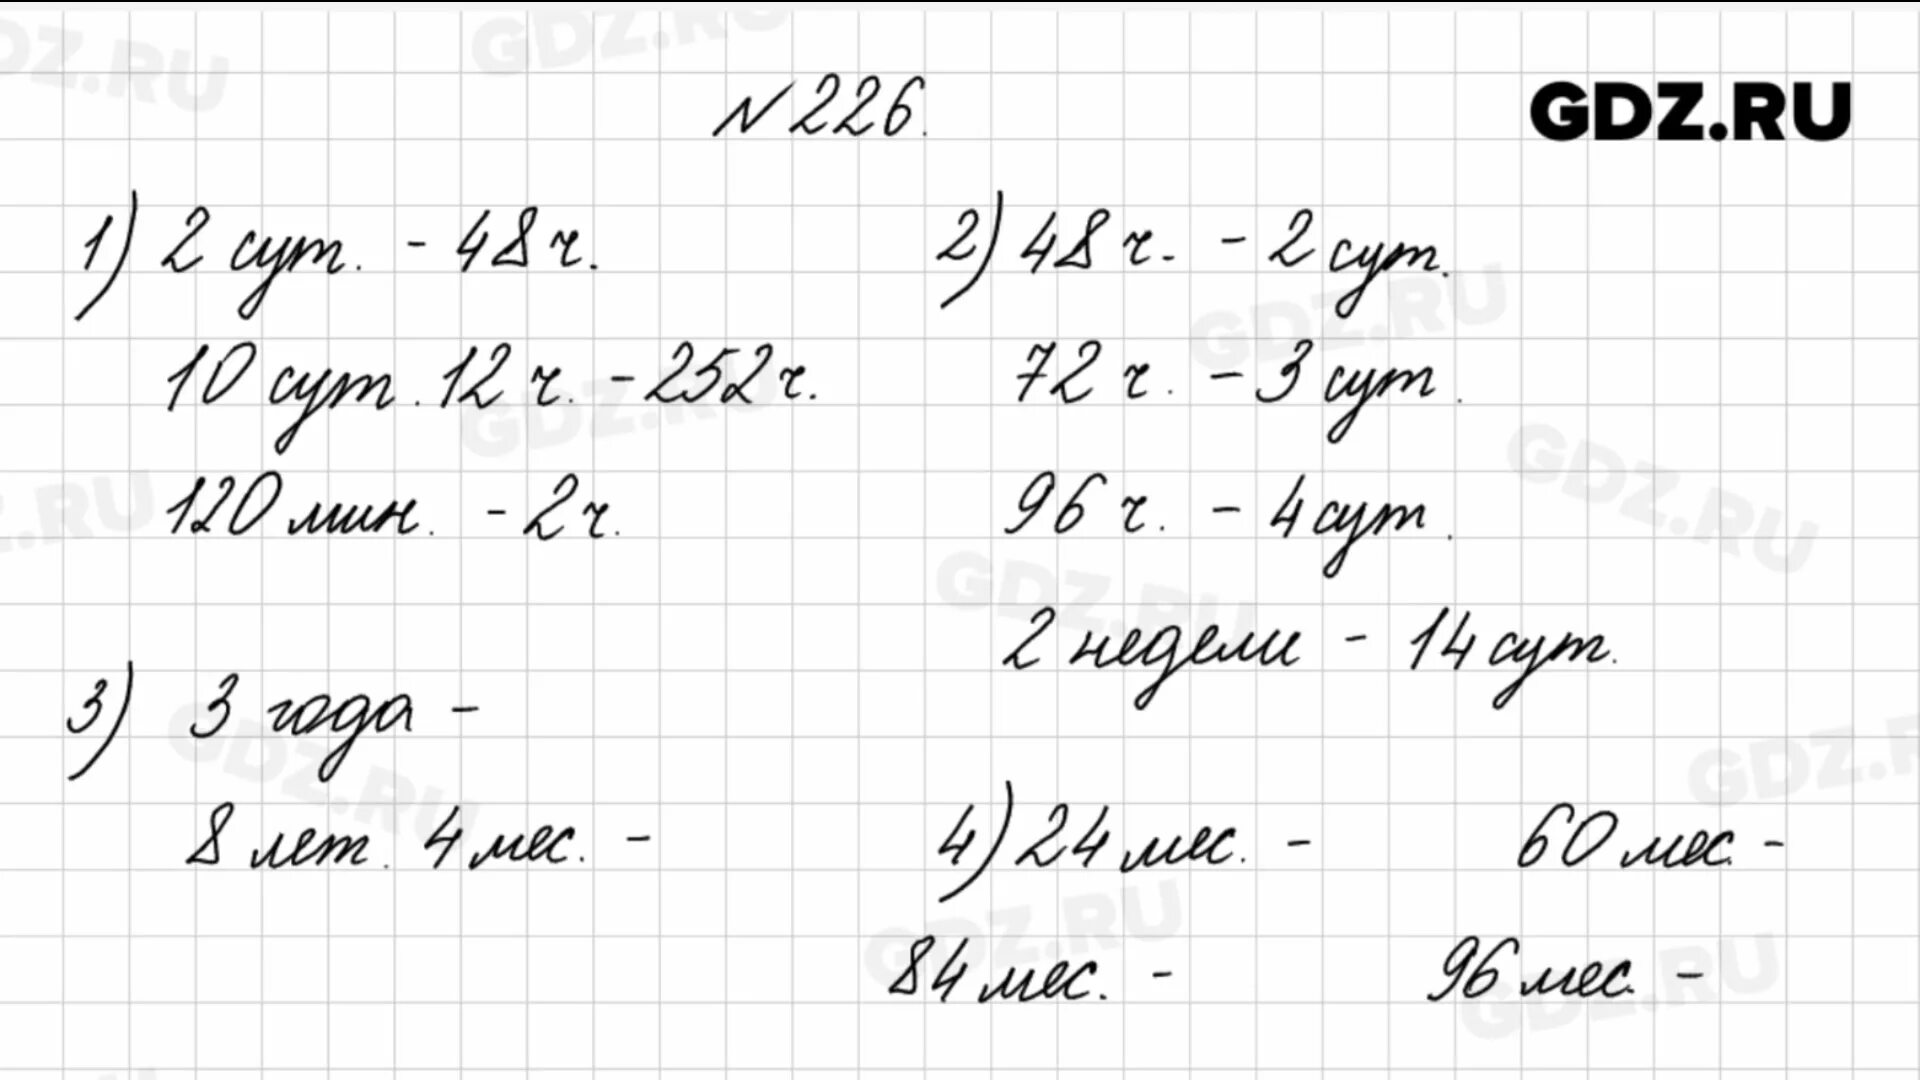 №226.
GDZ.RU
1) 2 сут. - 48 ч.
10 сут. 12 ч. - 252 ч.
120 мин. - 2 ч.
2) 48 ч. - 2 сут.
72 ч. - 3 сут.
96 ч. - 4 сут.
2 недели - 14 сут.
3) 3 года -
8 лет. 4 мес. -
4) 24 мес. - 60 мес. -
84 мес. - 96 мес. -